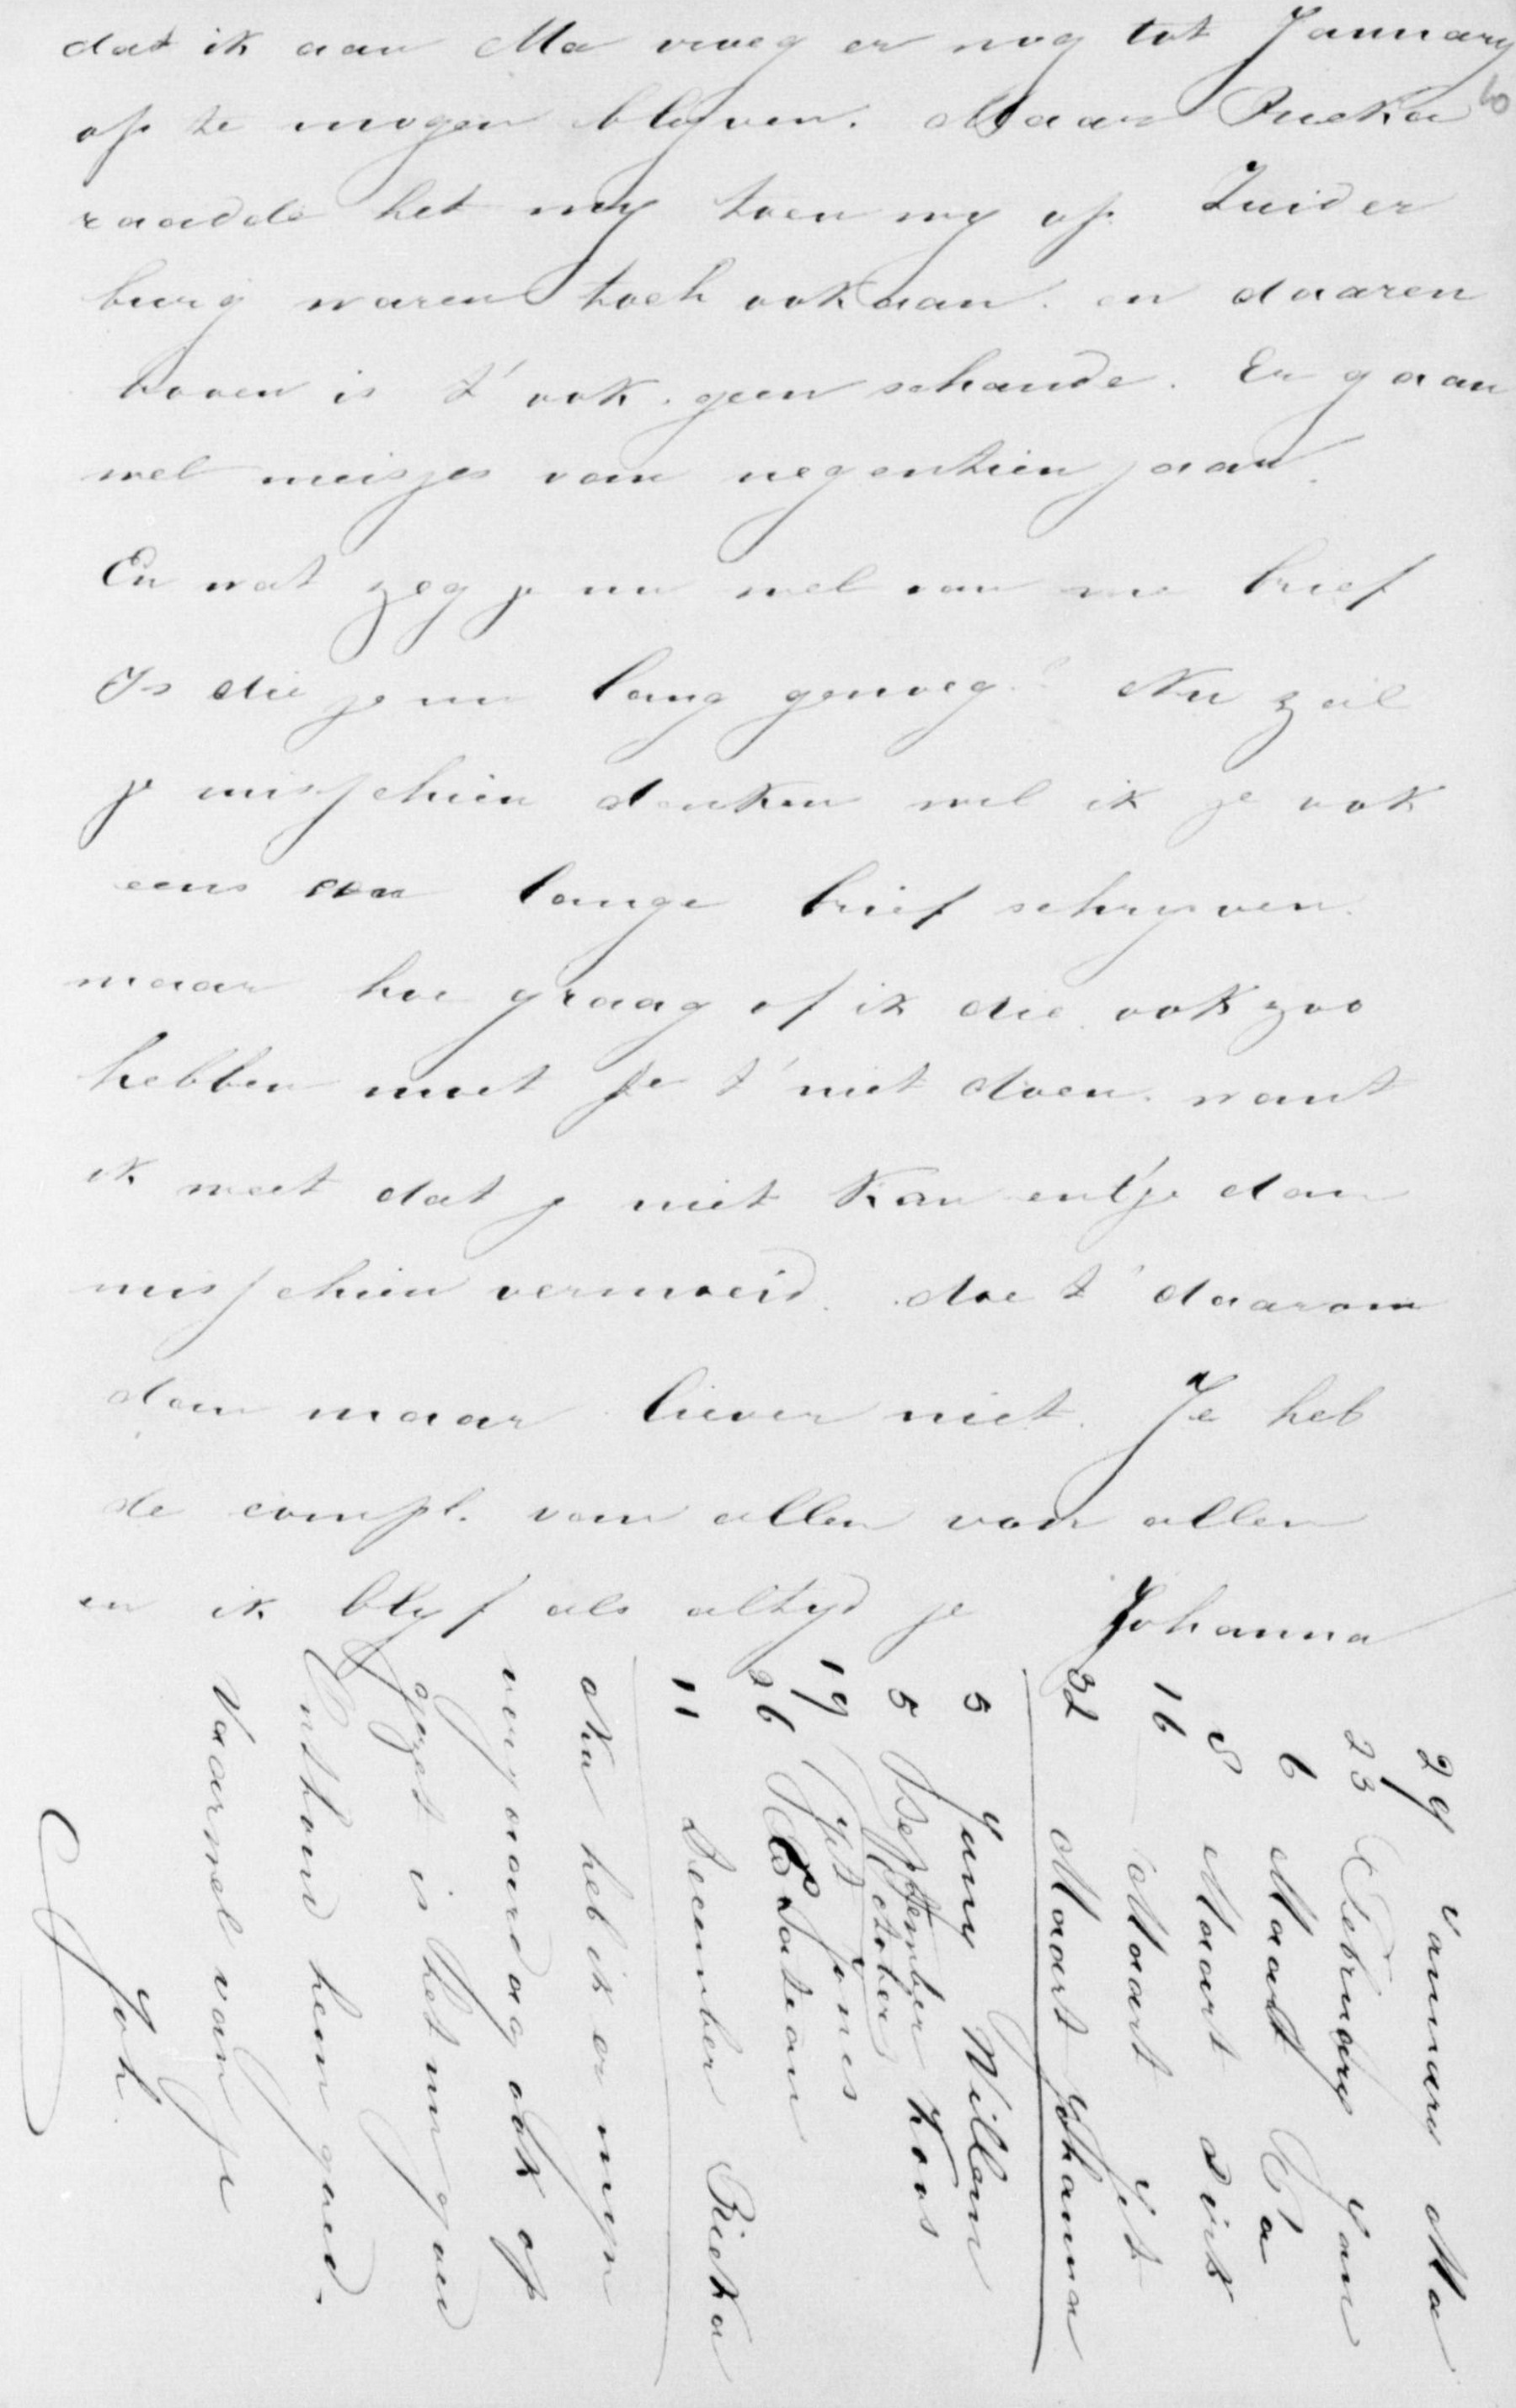 dat ik aan Ma vroeg er nog tot January
op te mogen blyven. Maar Rieka
raadde het my toen wy op Zuider
burg waren toch ook aan. en daaren
boven is t' ook geen schande. Er gaan
wel meisjes van negentien jaar.
En wat zeg je nu wel van me brief
Is die je nu lang genoeg? Nu zal
je misschien denken wel ik je ook
eens een lange brief schryven.
maar hoe graag of ik die ook zoo
hebben moet je t' niet doen. want
ik weet dat je niet kan en t' je dan
misschien vermoeid. doe t' daarom
dan maar liever niet. Je heb
de compl. van allen voor allen
en ik blyf als altyd je Johanna
29 January Ma
23 February Jan
6 Maart Pa
8 Maart Dirk
16 Maart Jet
32 Maart Johanna
5 Juny Willem
5 September Koos
19 October
26
11 December Rieka
Nu heb ik er myn
verjaardag ook op
gezet is het nu goed
Onthoud hem goed.
Vaarwel van je
Joh.
60